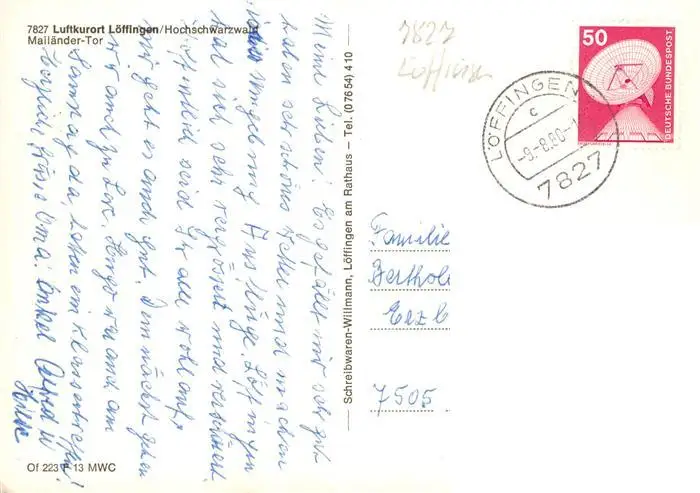 7827 Luftkurort Löffingen/Hochschwarzwald
Mailänder-Tor
Meine Lieben! Es gefällt mir sehr gut
haben sehr schönes Wetter und machen
in der Umgebung Ausflüge. Löffingen
hat sich sehr vergrößert und verschönert.
Hoffentlich seid Ihr alle wohlauf
mir geht es auch gut. Demnächst gehen
wir auch zu Lore. Hugo war auch am
Samstag da, hatten ein Klassentreffen!
Herzliche Grüße Oma. Onkel Alfred u.
Hilde
Of 223 F 13 MWC
Schreibwaren-Willmann, Löffingen am Rathaus – Tel. (07654) 410
7827
Löffingen
50
DEUTSCHE BUNDESPOST
LÖFFINGEN
c
-9.-8.80-1
7827
Familie
Berthol
7505